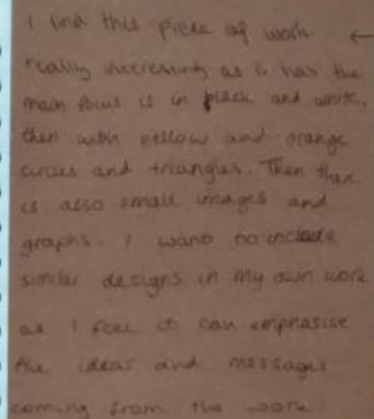 I find this piece of work
really interesting as it has the
main focus is in black and white,
then with yellow and orange
circles and triangles. Then there
is also small images and
graphs. I want to include
similar designs in my own work
as I feel it can emphasise
the ideas and messages
coming from the work